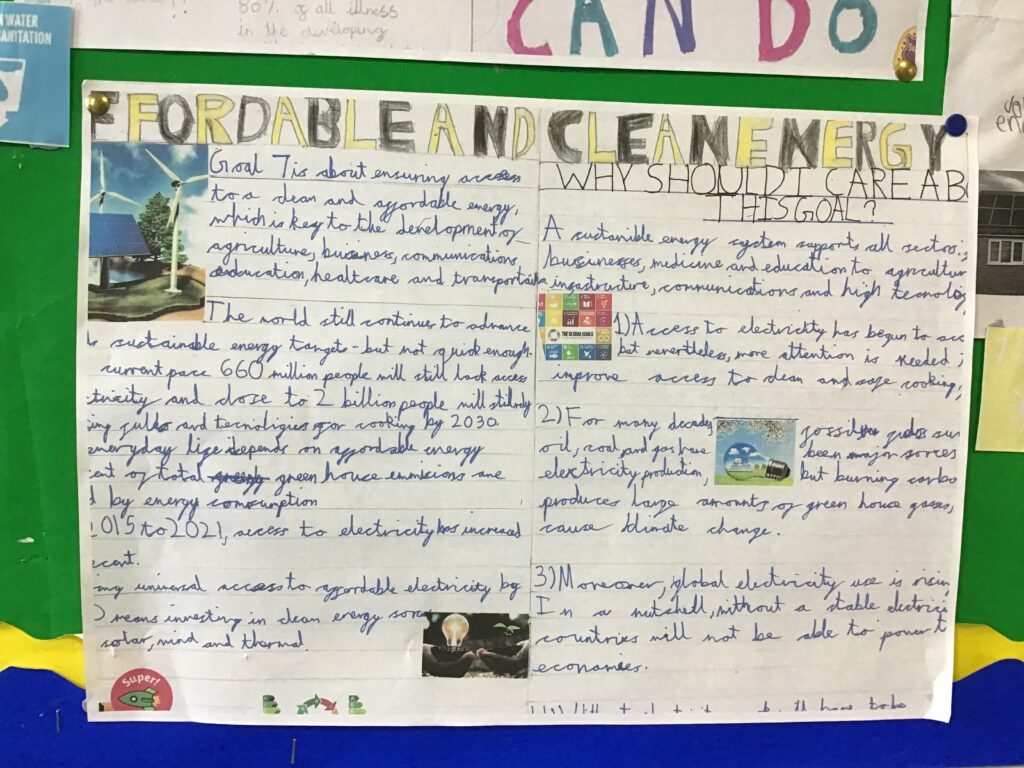 N WATER
ANITATION
80% of all illness
in the developing
CAN DO
FFORDABLE AND CLEAN ENERGY
Goal 7 is about ensuring access
to a clean and affordable energy,
which is key to the development of
agriculture, business, communications,
education, healtcare and transportation
The world still continues to advance
sustainable energy targets - but not quick enough.
current pace 660 million people will still lack access
ctricity and close to 2 billion people will still rely
ing and tecnoligies for cooking by 2030.
everyday life depends on affordable energy
cent of total green house emmisions are
d by energy comsumption
2015 to 2021, access to electricity has increased
ercent.
ing universal access to affordable electricity by
0 means investing in clean energy sorce
solar, wind and thermal.
Super!
WHY SHOULD I CARE AB
THIS GOAL?
A sustanible energy system supports all sectors:
bussinesses, medicine and education to agricultur
infastructure, communications and high tecnolog
THE GLOBAL GOALS
1) Access to electricity has begun to acc
but nevertheless, more attention is needed
improve access to clean and safe cooking,
2) For many decades fossil
oil, coal and gas have been major sorces
electricity production, but burning carbo
produces large amounts of green house gasses,
cause klimate change.
3) Moreover, global electricity use is risin
In a nutshell, without a stable electrici
countries will not be able to power t
economies.
have to be